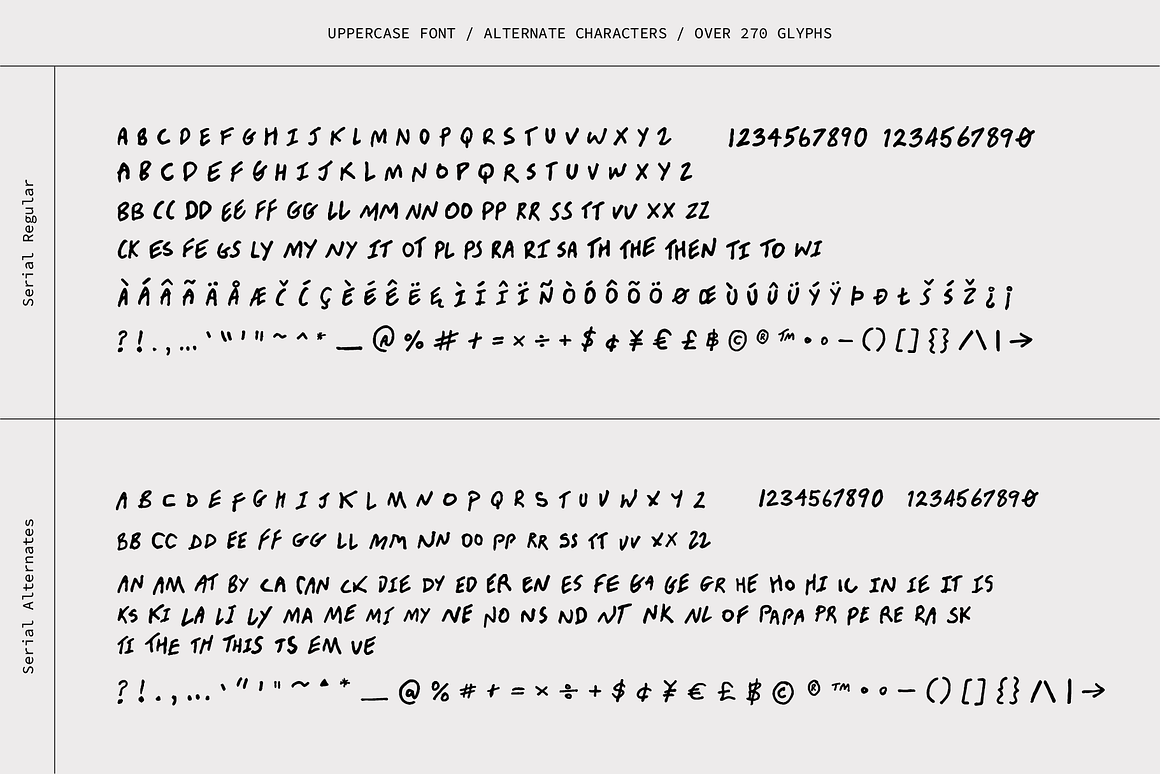 UPPERCASE FONT / ALTERNATE CHARACTERS / OVER 270 GLYPHS
Serial Regular
A B C D E F G H I J K L M N O P Q R S T U V W X Y Z 1234567890 1234567890
A B C D E F G H I J K L M N O P Q R S T U V W X Y Z
BB CC DD EE FF GG LL MM NN OO PP RR SS TT VV XX ZZ
CK ES FE GS LY MY NY IT OT PL PS RA RI SA TH THE THEN TI TO WI
À Á Â Ã Ä Å Æ Č Ć Ç È É Ê Ë Ę Ì Í Î Ï Ñ Ò Ó Ô Õ Ö Ø Œ Ù Ú Û Ü Ý Ÿ Þ Đ Ł Š Ś Ž ¿ ¡
? ! . , ... ‘ “ ’ " ~ ^ * _ @ % # + = × ÷ + $ ¢ ¥ € £ ₿ © ® ™ • ° – () [] {} /\ | →
Serial Alternates
A B C D E F G H I J K L M N O P Q R S T U V W X Y Z 1234567890 1234567890
BB CC DD EE FF GG LL MM NN OO PP RR SS TT VV XX ZZ
AN AM AT BY CA CAN CK DIE DY ED ER EN ES FE GA GE GR HE HO HI IC IN IE IT IS
KS KI LA LI LY MA ME MI MY NE NO NS ND NT NK NL OF PAPA PR PE RE RA SK
TI THE TH THIS TS EM VE
? ! . , ... ‘ “ ’ " ~ ^ * _ @ % # + = × ÷ + $ ¢ ¥ € £ ₿ © ® ™ • ° – () [] {} /\ | →